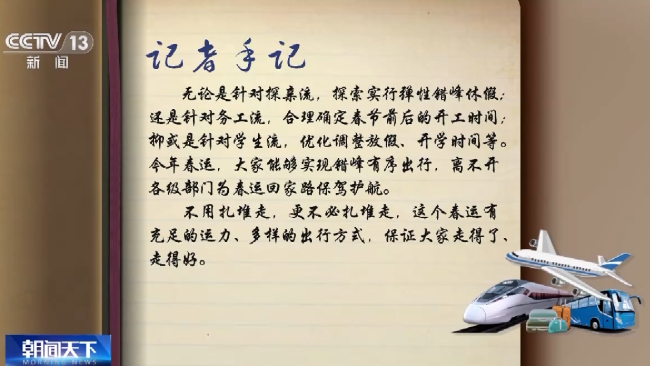 CCTV 13
新闻
记者手记
无论是针对探亲流，探索实行弹性错峰休假；
还是针对务工流，合理确定春节前后的开工时间；
抑或是针对学生流，优化调整放假、开学时间等。
今年春运，大家能够实现错峰有序出行，离不开
各级部门为春运回家路保驾护航。
不用扎堆走，更不必扎堆走，这个春运有
充足的运力、多样的出行方式，保证大家走得了、
走得好。
朝闻天下
MORNING NEWS